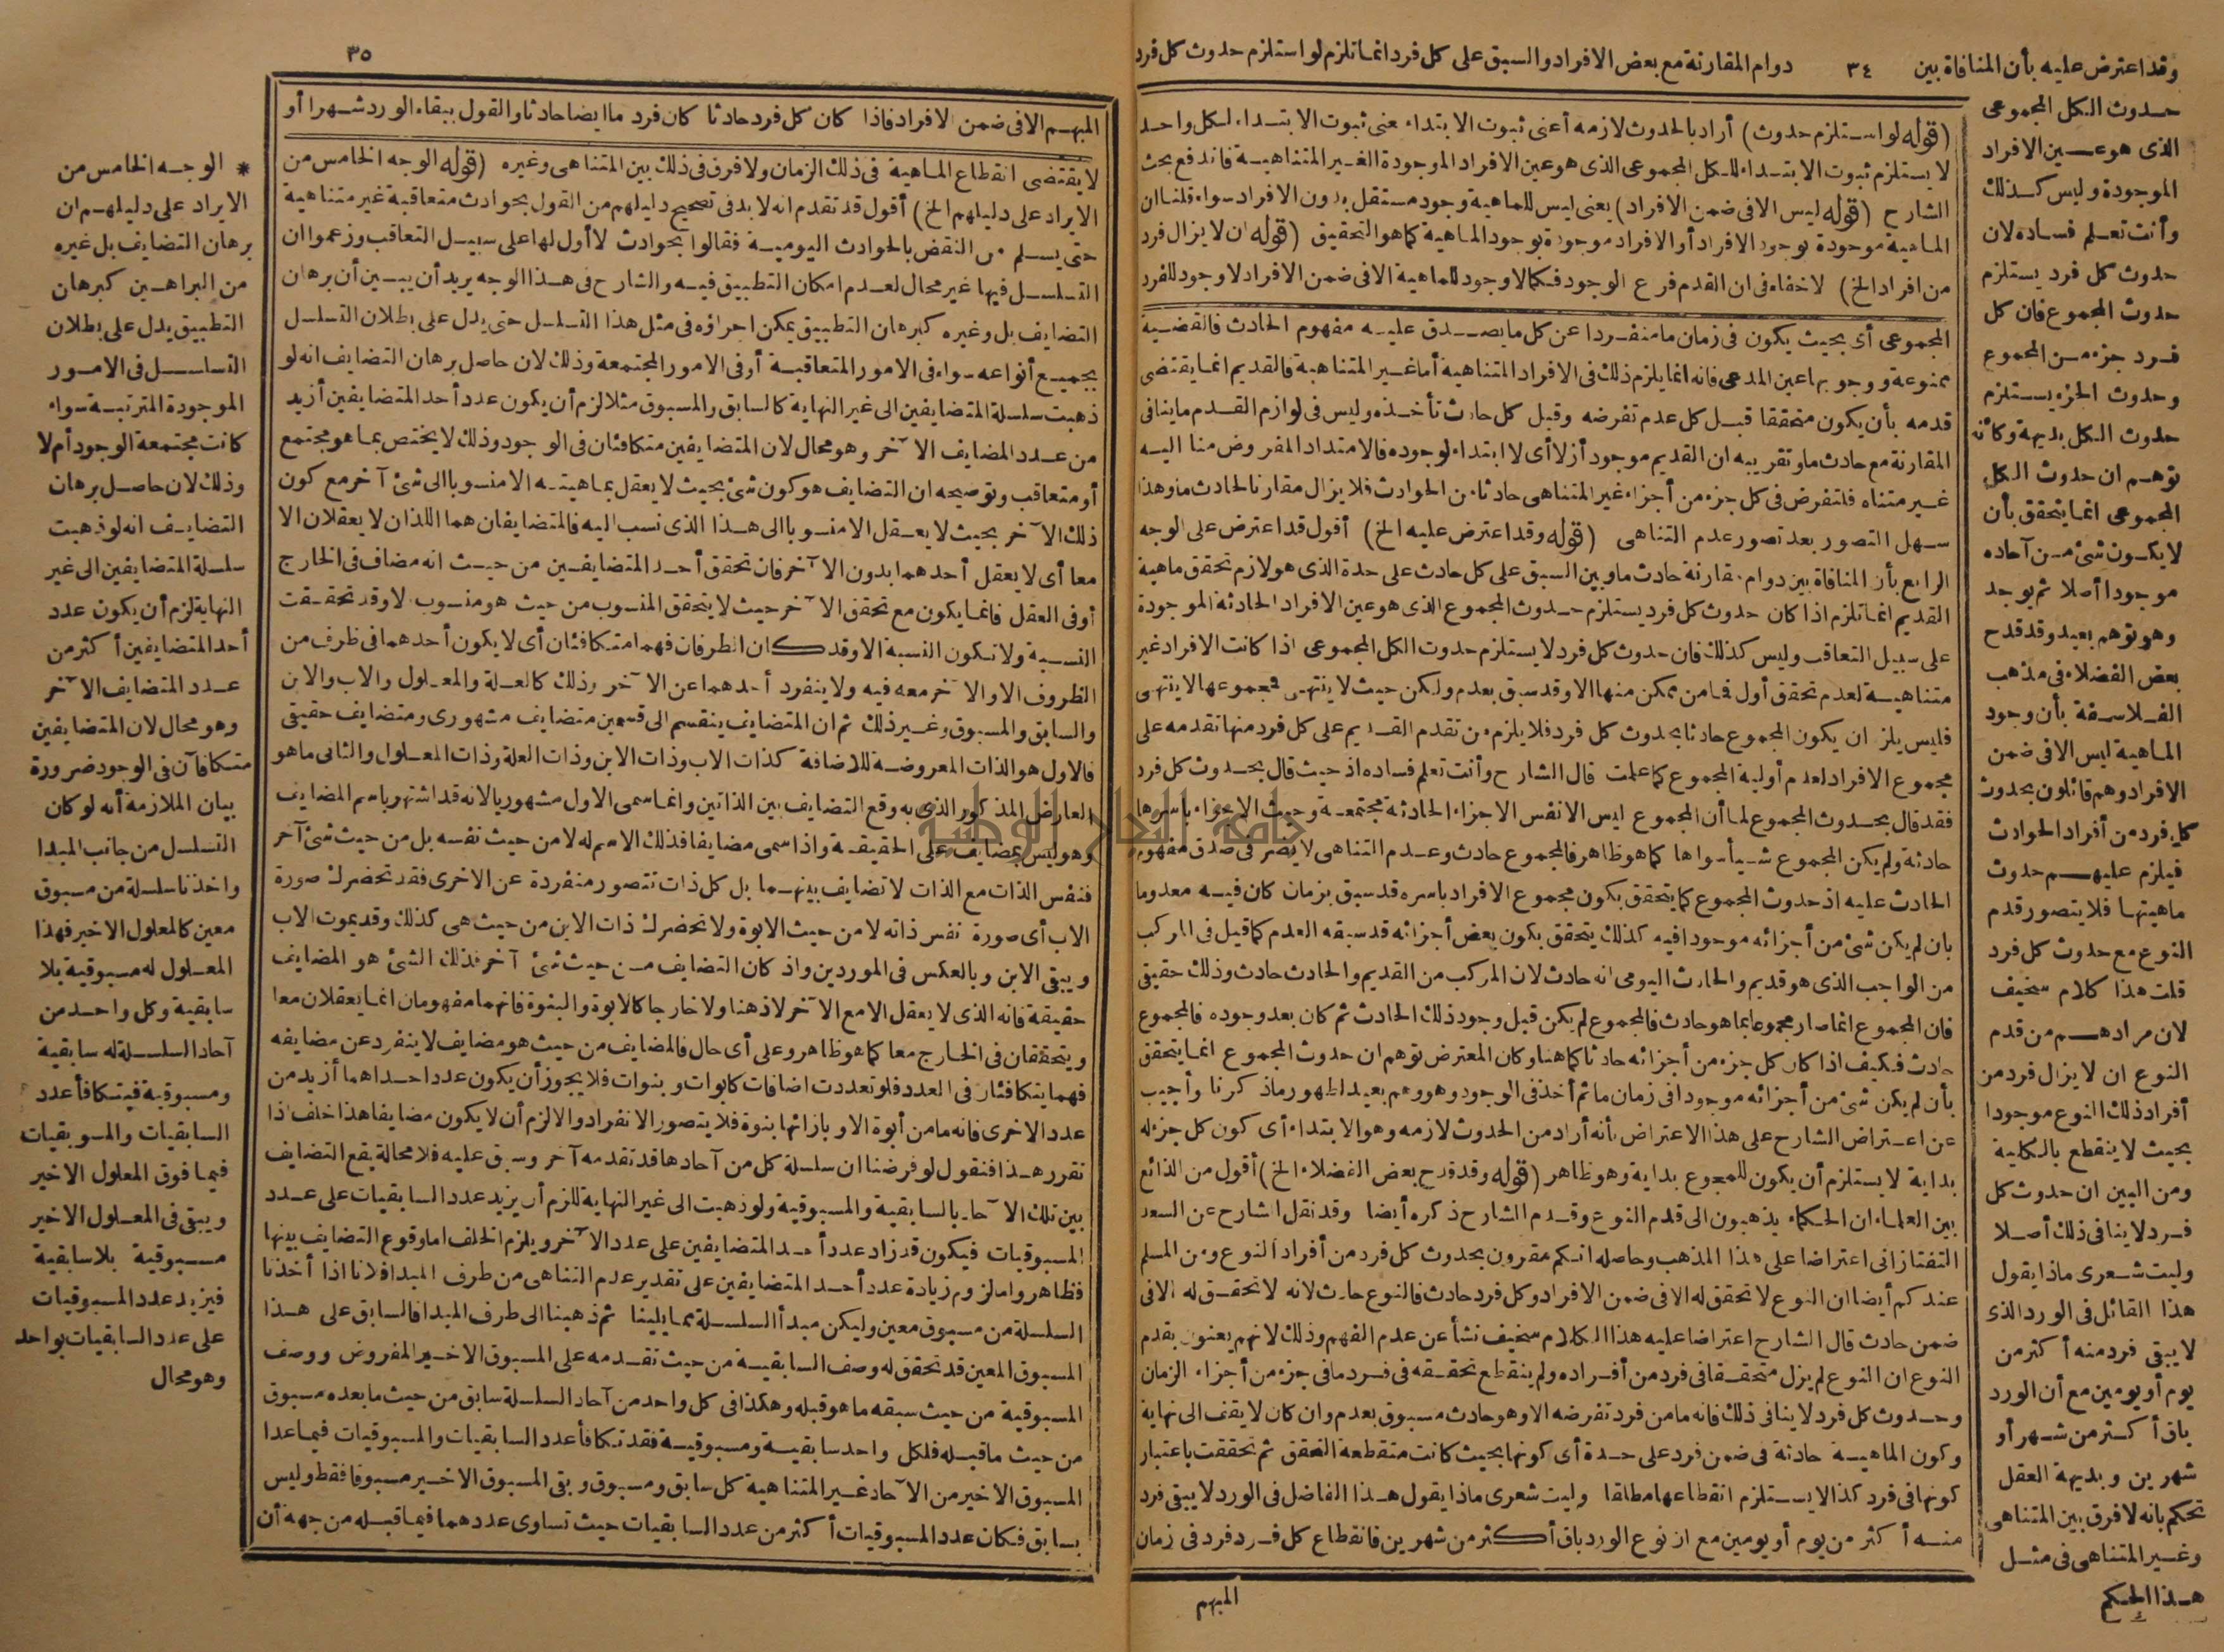 وقد اعترض عليه بأن المنافاة بين ٣٤ دوام المقارنة مع بعض الافراد والسبق على كل فرد انما تلزم لو استلزم حدوث كل فرد
حدوث الكل المجموعى
الذى هو عين الافراد
الموجودة وليس كذلك
وأنت تعلم فساده لان
حدوث كل فرد يستلزم
حدوث المجموع فان كل
فرد جزء من المجموع
وحدوث الجزء يستلزم
حدوث الكل بديهة وكأنه
توهم ان حدوث الكل
المجموعى انما يتحقق بأن
لا يكون شئ من آحاده
موجودا أصلا ثم يوجد
وهو توهم بعيد وقد قدح
بعض الفضلاء فى مذهب
الفلاسفة بأن وجود
الماهية ليس الا فى ضمن
الافراد وهم قائلون بحدوث
كل فرد من أفراد الحوادث
فيلزم عليهم حدوث
ماهيتها فلا يتصور قدم
النوع مع حدوث كل فرد
قلت هذا كلام سخيف
لان مرادهم من قدم
النوع ان لا يزال فرد من
أفراد ذلك النوع موجودا
بحيث لا ينقطع بالكلية
ومن البين ان حدوث كل
فرد لا ينافى ذلك أصلا
وليت شعرى ماذا يقول
هذا القائل فى الورد الذى
لا يبقى فرد منه أكثر من
يوم أو يومين مع أن الورد
باق أكثر من شهر أو
شهرين وبديهة العقل
تحكم بانه لا فرق بين المتناهى
وغير المتناهى فى مثل
هذا الحكم
(قوله لو استلزم حدوث) أراد بالحدوث لازمه أعنى ثبوت الابتداء عنى ثبوت الابتداء لكل واحد
لا يستلزم ثبوت الابتداء للكل المجموعى الذى هو عين الافراد الموجودة الغير المتناهية فاندفع بحث
الشارح (قوله ليس الا فى ضمن الافراد) يعنى ليس للماهية وجود مستقل بدون الافراد سواء قلنا ان
الماهية موجودة بوجود الافراد أو الافراد موجودة بوجود الماهية كما هو التحقيق (قوله ان لا يزال فرد
من افراد الخ) لا خفاء فى ان القدم فرع الوجود فكما لا وجود للماهية الا فى ضمن الافراد لا وجود للفرد
المجموعى أى بحيث يكون فى زمان ما منفردا عن كل ما يصدق عليه مفهوم الحادث فالقضية
ممنوعة ووجوبها عين المدعى فانه انما يلزم ذلك فى الافراد المتناهية أما غير المتناهية فالقديم انما يقتضى
قدمه بأن يكون متحققا قبل كل عدم تفرضه وقبل كل حادث تأخذه وليس فى لوازم القدم ما ينافى
المقارنة مع حادث ما وتقريبه ان القديم موجود أزلا أى لا ابتداء لوجوده فالامتداد المفروض منا اليه
غير متناه فلتفرض فى كل جزء من أجزاء غير المتناهى حادثا من الحوادث فلا يزال مقارنا لحادث ما وهذا
سهل التصور بعد تصور عدم التناهى (قوله وقد اعترض عليه الخ) أقول قد اعترض على الوجه
الرابع بأن المنافاة بين دوام مقارنة حادث ما وبين السبق على كل حادث على حدة الذى هو لازم تحقق ماهية
القديم انما تلزم اذا كان حدوث كل فرد يستلزم حدوث المجموع الذى هو عين الافراد الحادثة الموجودة
على سبيل التعاقب وليس كذلك فان حدوث كل فرد لا يستلزم حدوث الكل المجموعى اذا كانت الافراد غير
متناهية لعدم تحقق أول فما من ممكن منها الا وقد سبق بعدم ولكن حيث لا ينتهى فمجموعها لا ينتهى
فليس يلزم ان يكون المجموع حادثا بحدوث كل فرد فلا يلزم من تقدم القديم على كل فرد منها تقدمه على
مجموع الافراد لعدم أولية المجموع كما علمت قال الشارح وأنت تعلم فساده اذ حيث قال بحدوث كل فرد
فقد قال بحدوث المجموع لما أن المجموع ليس الا نفس الاجزاء الحادثة مجتمعة وحيث الاجزاء باسرها
حادثة ولم يكن المجموع شيأ سواها كما هو ظاهر فالمجموع حادث وعدم التناهى لا يضر فى صدق مفهوم
الحادث عليه اذ حدوث المجموع كما يتحقق بكون مجموع الافراد باسره قد سبق بزمان كان فيه معدوما
بان لم يكن شئ من أجزائه موجودا فيه كذلك يتحقق بكون بعض أجزائه قد سبقه العدم كما قيل فى المركب
من الواجب الذى هو قديم والحادث اليومى انه حادث لان المركب من القديم والحادث حادث وذلك حقيقى
فان المجموع انما صار مجموعا بما هو حادث فالمجموع لم يكن قبل وجود ذلك الحادث ثم كان بعد وجوده فالمجموع
حادث فكيف اذا كان كل جزء من أجزائه حادثا كما هنا وكان المعترض توهم ان حدوث المجموع انما يتحقق
بأن لم يكن شئ من أجزائه موجودا فى زمان ما ثم أخذ فى الوجود وهو وهم بعيد لظهور ما ذكرنا وأجيب
عن اعتراض الشارح على هذا الاعتراض بأنه أراد من الحدوث لازمه وهو الابتداء أى كون كل جزء له
بداية لا يستلزم أن يكون للمجموع بداية وهو ظاهر (قوله وقد قدح بعض الفضلاء الخ) أقول من الذائع
بين العلماء ان الحكماء يذهبون الى قدم النوع وقدم الشارح ذكره أيضا وقد نقل الشارح عن السعد
التفتازانى اعتراضا على هذا المذهب وحاصله انكم مقرون بحدوث كل فرد من أفراد النوع ومن المسلم
عندكم أيضا ان النوع لا تحقق له الا فى ضمن الافراد وكل فرد حادث فالنوع حادث لانه لا تحقق له الا فى
ضمن حادث قال الشارح اعتراضا عليه هذا الكلام سخيف نشأ عن عدم الفهم وذلك لانهم يعنون بقدم
النوع ان النوع لم يزل متحققا فى فرد من أفراده ولم ينقطع تحققه فى فرد ما فى جزء من أجزاء الزمان
وحدوث كل فرد لا ينافى ذلك فانه ما من فرد تفرضه الا وهو حادث مسبوق بعدم وان كان لا يقف الى نهاية
وكون الماهية حادثة فى ضمن فرد على حدة أى كونها بحيث كانت منقطعة التحقق ثم تحققت باعتبار
كونها فى فرد كذا لا يستلزم انقطاعها مطلقا وليت شعرى ماذا يقول هذا الفاضل فى الورد لا يبقى فرد
منه أكثر من يوم أو يومين مع ان نوع الورد باق أكثر من شهرين فانقطاع كل فرد فرد فى زمان
المبهم
٣٥
المبهم الا فى ضمن الافراد فاذا كان كل فرد حادثا كان فرد ما ايضا حادثا والقول ببقاء الورد شهرا أو
لا يقتضى انقطاع الماهية فى ذلك الزمان ولا فرق فى ذلك بين المتناهى وغيره (قوله الوجه الخامس من
الايراد على دليلهم الخ) أقول قد تقدم انه لا بد فى تصحيح دليلهم من القول بحوادث متعاقبة غير متناهية
حتى يسلم من النقض بالحوادث اليومية فقالوا بحوادث لا أول لها على سبيل التعاقب وزعموا ان
التسلسل فيها غير محال لعدم امكان التطبيق فيه والشارح فى هذا الوجه يريد أن يبين أن برهان
التضايف بل وغيره كبرهان التطبيق يمكن اجراؤه فى مثل هذا التسلسل حتى يدل على بطلان التسلسل
بجميع أنواعه سواء فى الامور المتعاقبة أو فى الامور المجتمعة وذلك لان حاصل برهان التضايف انه لو
ذهبت سلسلة المتضايفين الى غير النهاية كالسابق والمسبوق مثلا لزم أن يكون عدد أحد المتضايفين أزيد
من عدد المضايف الآخر وهو محال لان المتضايفين متكافئان فى الوجود وذلك لا يختص بما هو مجتمع
أو متعاقب وتوضيحه ان التضايف هو كون شئ بحيث لا يعقل بماهيته الا منسوبا الى شئ آخر مع كون
ذلك الآخر بحيث لا يعقل الا منسوبا الى هذا الذى نسب اليه فالمتضايفان هما اللذان لا يعقلان الا
معا أى لا يعقل أحدهما بدون الآخر فان تحقق أحد المتضايفين من حيث انه مضاف فى الخارج
أو فى العقل فانما يكون مع تحقق الآخر حيث لا يتحقق المنسوب من حيث هو منسوب الا وقد تحققت
النسبة ولا تكون النسبة الا وقد كان الطرفان فهما متكافئان أى لا يكون أحدهما فى ظرف من
الظروف الا والآخر معه فيه ولا ينفرد أحدهما عن الآخر وذلك كالعلة والمعلول والاب والابن
والسابق والمسبوق وغير ذلك ثم ان المتضايف ينقسم الى قسمين متضايف مشهورى ومتضايف حقيقى
فالاول هو الذات المعروضة للاضافة كذات الاب وذات الابن وذات العلة وذات المعلول والثانى ما هو
العارض المذكور الذى به وقع التضايف بين الذاتين وانما سمى الاول مشهوريا لانه قد اشتهر باسم المضايف
وهو ليس بمضايف على الحقيقة واذا سمى مضايفا فذلك الاسم له لا من حيث نفسه بل من حيث شئ آخر
فنفس الذات مع الذات لا تضايف بينهما بل كل ذات تتصور منفردة عن الاخرى فقد تحضرك صورة
الاب أى صورة نفس ذاته لا من حيث الابوة ولا تحضرك ذات الابن من حيث هى كذلك وقد يموت الاب
ويبقى الابن وبالعكس فى الموردين واذ كان التضايف من حيث شئ آخر فذلك الشئ هو المضايف
حقيقة فانه الذى لا يعقل الا مع الآخر لا ذهنا ولا خارجا كالابوة والبنوة فانهما مفهومان انما يعقلان معا
ويتحققان فى الخارج معا كما هو ظاهر وعلى أى حال فالمضايف من حيث هو مضايف لا ينفرد عن مضايفه
فهما يتكافئان فى العدد فلو تعددت اضافات كابوات وبنوات فلا يجوز أن يكون عدد احداهما أزيد من
عدد الاخرى فانه ما من أبوة الا وبازائها بنوة فلا يتصور الانفراد والا لزم أن لا يكون مضايفا هذا خلف اذا
تقرر هذا فنقول لو فرضنا ان سلسلة كل من آحادها قد تقدمه آخر وسبق عليه فلا محالة يقع التضايف
بين تلك الآحاد بالسابقية والمسبوقية ولو ذهبت الى غير النهاية للزم أن يزيد عدد السابقيات على عدد
المسبوقيات فيكون قد زاد عدد أحد المتضايفين على عدد الآخر ويلزم الخلف اما وقوع التضايف بينها
فظاهر واما لزوم زيادة عدد أحد المتضايفين على تقدير عدم التناهى من طرف المبدا فلانا اذا أخذنا
السلسلة من مسبوق معين وليكن مبدأ السلسلة مما يلينا ثم ذهبنا الى طرف المبدا فالسابق على هذا
المسبوق المعين قد تحقق له وصف السابقية من حيث تقدمه على المسبوق الاخير المفروض ووصف
المسبوقية من حيث سبقه ما هو قبله وهكذا فى كل واحد من آحاد السلسلة سابق من حيث ما بعده مسبوق
من حيث ما قبله فلكل واحد سابقية ومسبوقية فقد تكافأ عدد السابقيات والمسبوقيات فيما عدا
المسبوق الاخير من الآحاد غير المتناهية كل سابق ومسبوق وبقى المسبوق الاخير مسبوقا فقط وليس
بسابق فكان عدد المسبوقيات أكثر من عدد السابقيات حيث تساوى عددهما فيما قبله من جهة أن
* الوجه الخامس من
الايراد على دليلهم ان
برهان التضايف بل غيره
من البراهين كبرهان
التطبيق يدل على بطلان
التسلسل فى الامور
الموجودة المترتبة سواء
كانت مجتمعة الوجود أم لا
وذلك لان حاصل برهان
التضايف انه لو ذهبت
سلسلة المتضايفين الى غير
النهاية لزم أن يكون عدد
أحد المتضايفين أكثر من
عدد المتضايف الآخر
وهو محال لان المتضايفين
متكافآن فى الوجود ضرورة
بيان الملازمة أنه لو كان
التسلسل من جانب المبدا
واخذنا سلسلة من مسبوق
معين كالمعلول الاخير فهذا
المعلول له مسبوقية بلا
سابقية وكل واحد من
آحاد السلسلة له سابقية
ومسبوقية فيتكافأ عدد
السابقيات والمسوبقيات
فيما فوق المعلول الاخير
ويبقى فى المعلول الاخير
مسبوقية بلا سابقية
فيزيد عدد المسبوقيات
على عدد السابقيات بواحد
وهو محال
جامعة النجاح الوطنية